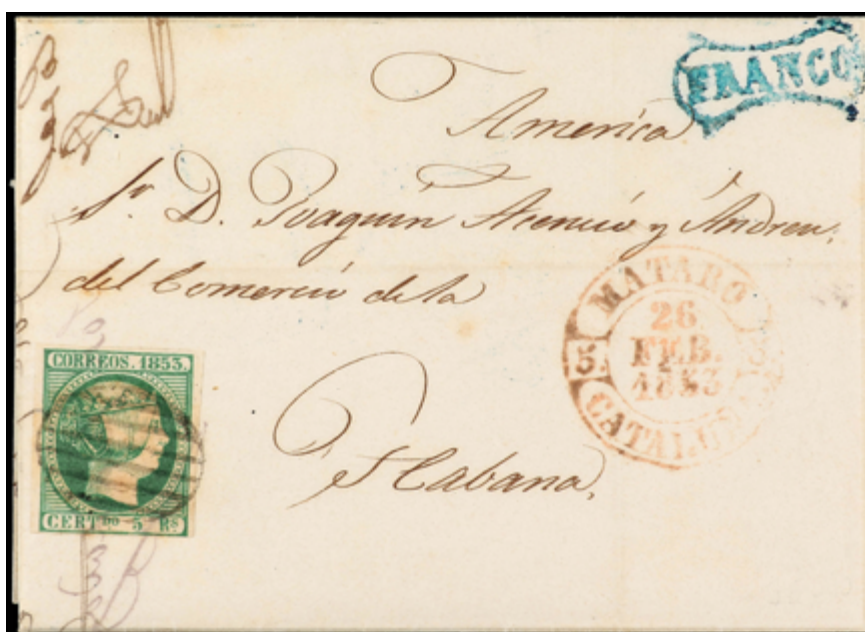 FRANCO
America
Sr. D. Joaquin Atencio y Andreu.
del Comercio de la
Habana.
MATARO
26
FEB.
1853
CATALUÑA
5
CORREOS. 1853.
CERTDO 5 RS